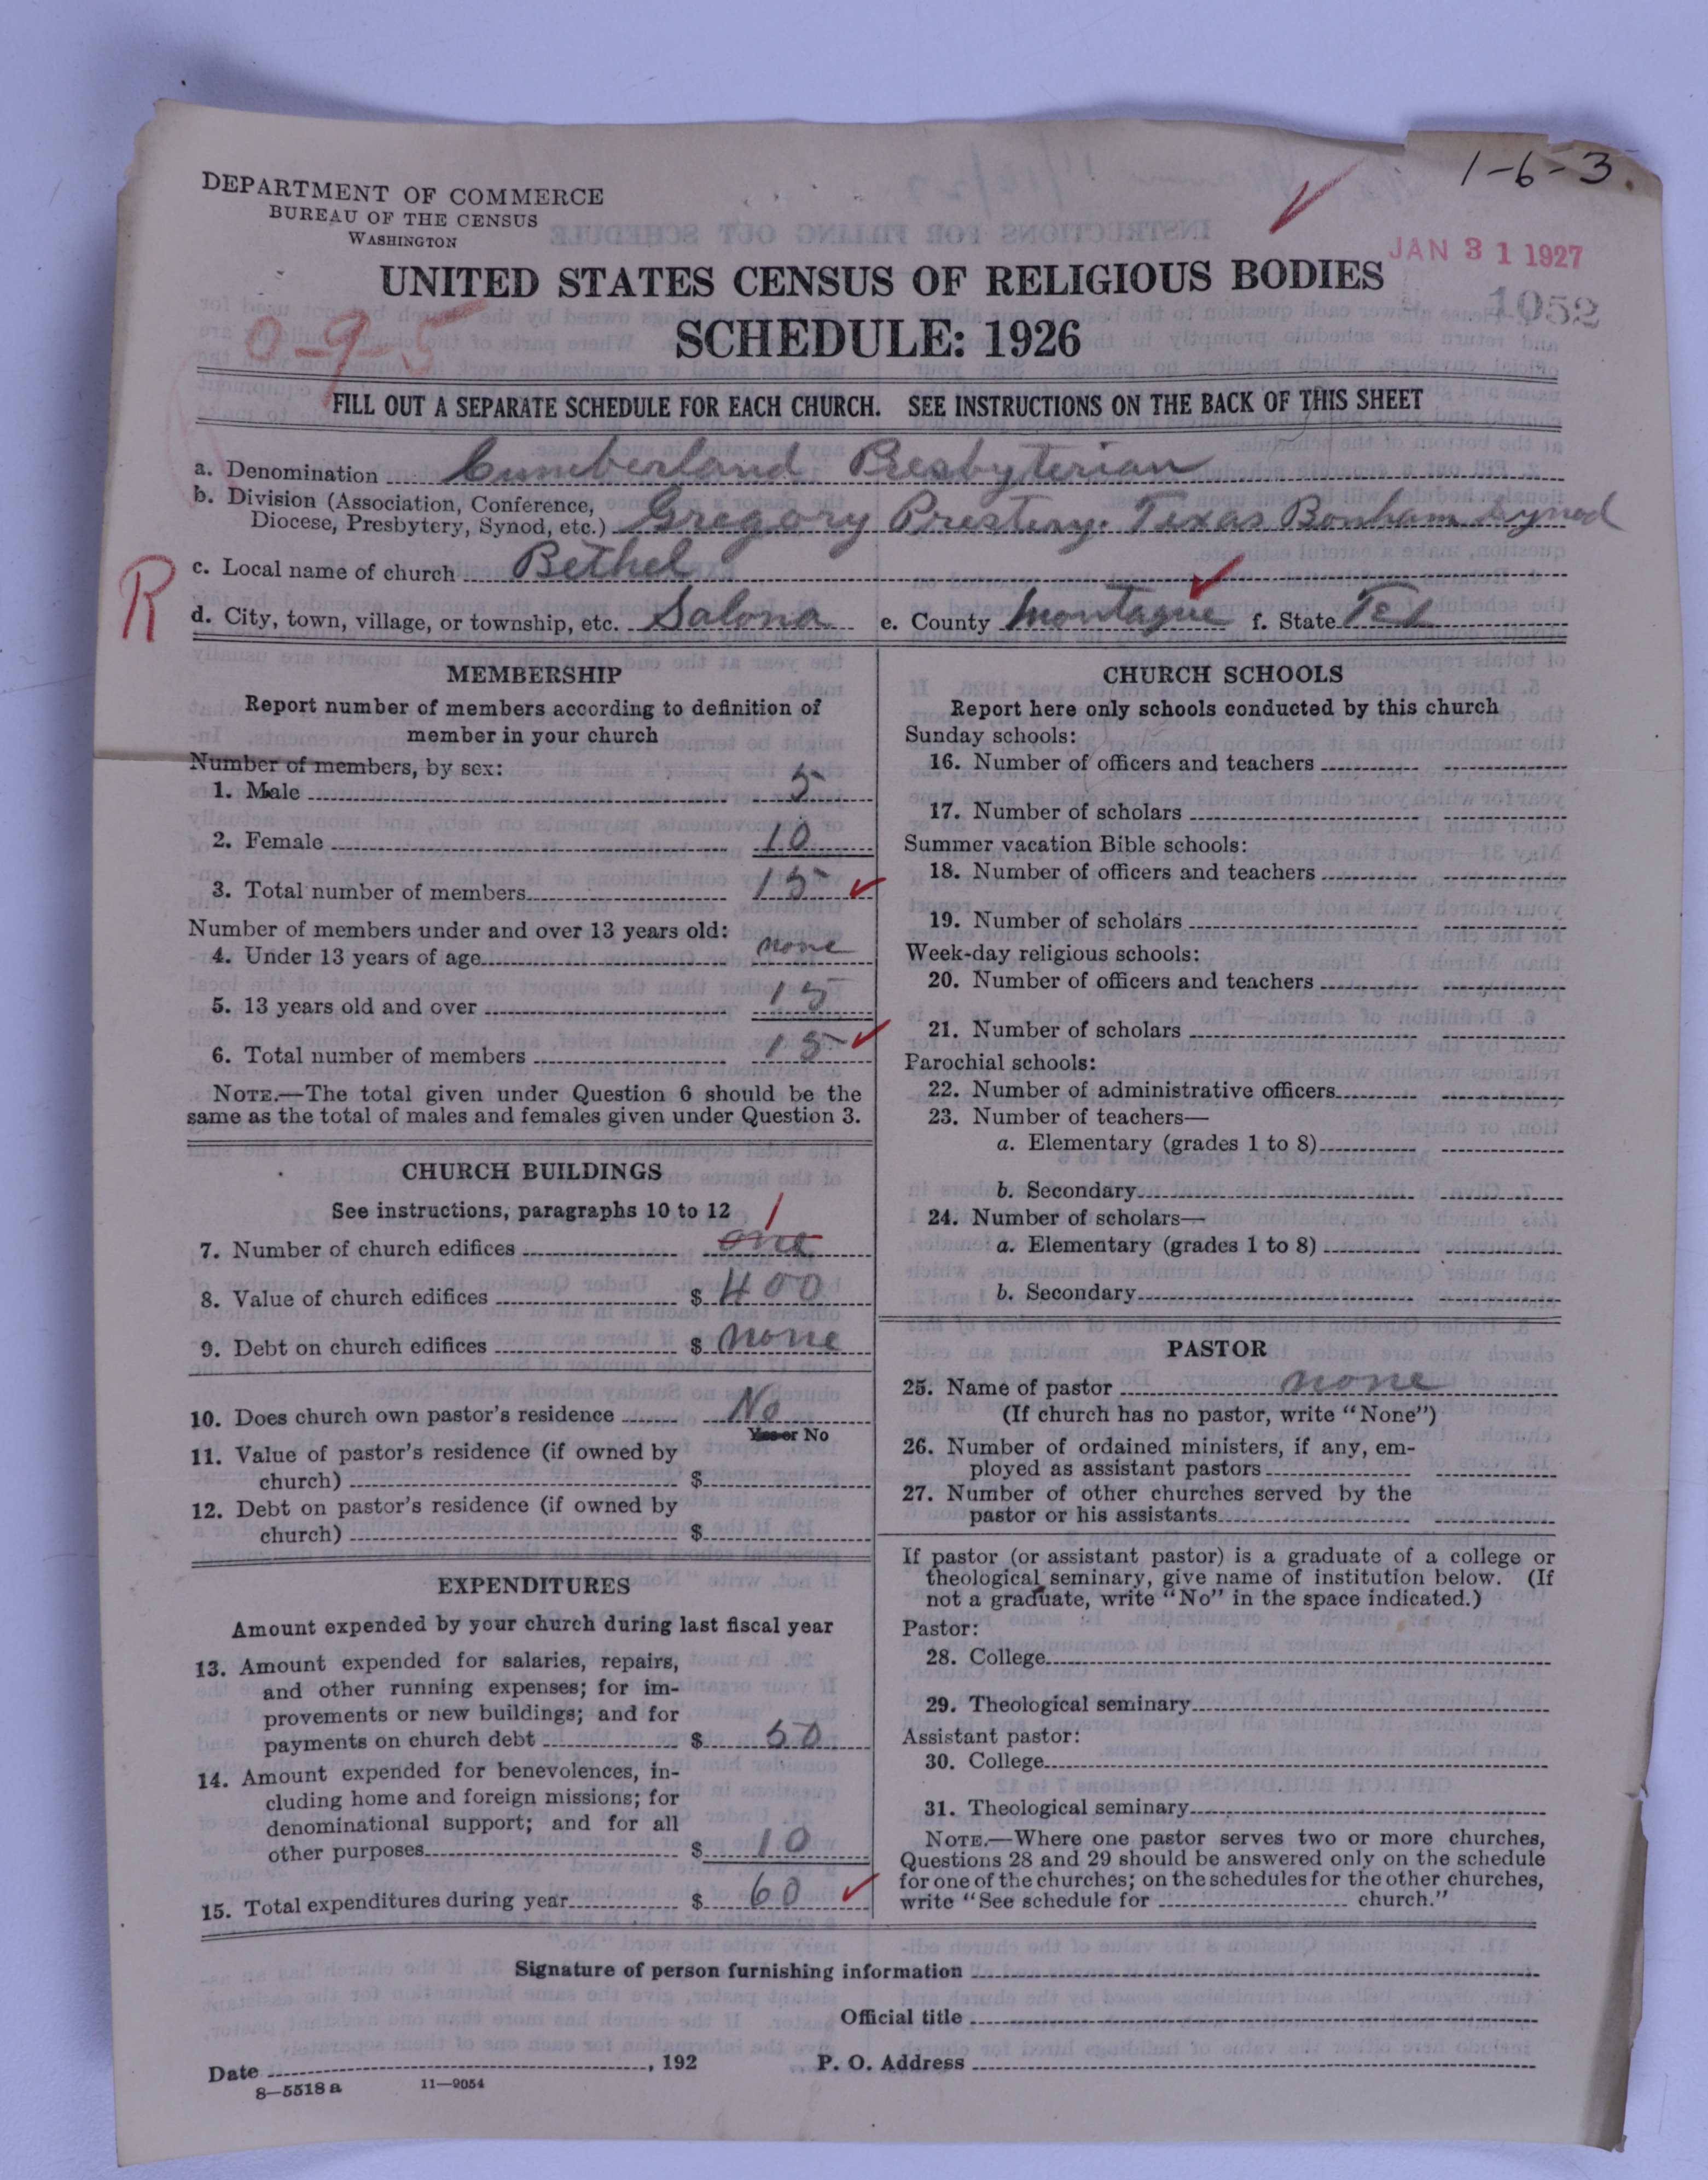 1-6-3.
DEPARTMENT OF COMMERCE
BUREAU OF THE CENSUS
WASHINGTON
JAN 31 1927
UNITED STATES CENSUS OF RELIGIOUS BODIES
1052
SCHEDULE: 1926
0-9-5
FILL OUT A SEPARATE SCHEDULE FOR EACH CHURCH. SEE INSTRUCTIONS ON THE BACK OF THIS SHEET
a. Denomination Cumberland Presbyterian
b. Division (Association, Conference,
Diocese, Presbytery, Synod, etc.) Gregory Prestery. Texas Bonham Synod
R
c. Local name of church Bethel
d. City, town, village, or township, etc. Salona e. County Montague f. State Tex
MEMBERSHIP
Report number of members according to definition of
member in your church
Number of members, by sex:
1. Male 5
2. Female 10
3. Total number of members 15
Number of members under and over 13 years old:
4. Under 13 years of age none
5. 13 years old and over 15
6. Total number of members 15
NOTE.—The total given under Question 6 should be the
same as the total of males and females given under Question 3.
CHURCH BUILDINGS
See instructions, paragraphs 10 to 12
1
7. Number of church edifices one
8. Value of church edifices $ 400
9. Debt on church edifices $ none
10. Does church own pastor's residence No
Yes or No
11. Value of pastor's residence (if owned by
church) $
12. Debt on pastor's residence (if owned by
church) $
EXPENDITURES
Amount expended by your church during last fiscal year
13. Amount expended for salaries, repairs,
and other running expenses; for im-
provements or new buildings; and for
payments on church debt $ 50
14. Amount expended for benevolences, in-
cluding home and foreign missions; for
denominational support; and for all
other purposes $ 10
15. Total expenditures during year $ 60
CHURCH SCHOOLS
Report here only schools conducted by this church
Sunday schools:
16. Number of officers and teachers
17. Number of scholars
Summer vacation Bible schools:
18. Number of officers and teachers
19. Number of scholars
Week-day religious schools:
20. Number of officers and teachers
21. Number of scholars
Parochial schools:
22. Number of administrative officers
23. Number of teachers—
a. Elementary (grades 1 to 8)
b. Secondary
24. Number of scholars—
a. Elementary (grades 1 to 8)
b. Secondary
PASTOR
25. Name of pastor none
(If church has no pastor, write "None")
26. Number of ordained ministers, if any, em-
ployed as assistant pastors
27. Number of other churches served by the
pastor or his assistants
If pastor (or assistant pastor) is a graduate of a college or
theological seminary, give name of institution below. (If
not a graduate, write "No" in the space indicated.)
Pastor:
28. College
29. Theological seminary
Assistant pastor:
30. College
31. Theological seminary
NOTE.—Where one pastor serves two or more churches,
Questions 28 and 29 should be answered only on the schedule
for one of the churches; on the schedules for the other churches,
write "See schedule for church."
Signature of person furnishing information
Official title
Date , 192 P. O. Address
8—5518 a 11—9054